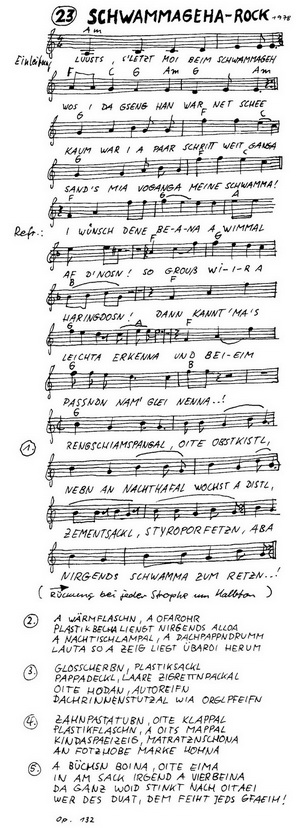 23 SCHWAMMAGEHA-ROCK 1978
Am
Einleitung LUUSTS, S'LETZT MOI BEIM SCHWAMMAGEH
F C G Am G Am
WOS I DA GSENG HAN WAR NET SCHEE
G F C
KAUM WAR I A PAAR SCHRITT WEIT GANGA
G F G
SAND'S MIA VOGANGA MEINE SCHWAMMA!
F G A
Refr.: I WÜNSCH DENE BE-A-NA A WIMMAL
G F G
AF D'NOSN! SO GROUß WI-I-R A
B F
HARINGDOSN! DANN KANNT'MA'S
G A F
LEICHTA ERKENNA UND BEI-EIM
G B
PASSNDN NAM' GLEI NENNA..!
G
1. RENGSCHIAMSPANGAL, OITE OBSTKISTL,
NEBN AN NACHTHAFAL WOCHST A DISTL,
ZEMENTSACKL, STYROPORFETZN, ABA
NIRGENDS SCHWAMMA ZUM RETZN..!
( → Rückung bei jeder Strophe um Halbton )
2. A WÄRMFLASCHN, A OFAROHR
PLASTIKBECHA LIENGT NIRGENDS ALLOA
A NACHTISCHLAMPAL, A DACHPAPPNDRUMM
LAUTA SO A ZEIG LIEGT ÜBAROI HERUM
3. GLOSSCHERBN, PLASTIKSACKL
PAPPADECKL, LAARE ZIGRETTNPACKAL
OITE HODAN, AUTOREIFN
DACHRINNENSTUTZAL WIA ORGLPFEIFN
4. ZAHNPASTATUBN, OITE KLAPPAL
PLASTIKFLASCHN, A OITS MAPPAL
KINDASPAEIZEIG, MATRATZNSCHONA
AN FOTZHOBE MARKE HOHNA
5. A BÜCHSN BOINA, OITE EIMA
IN AM SACK IRGEND A VIERBEINA
DA GANZ WOID STINKT NACH OITAEI
WER DES DUAT, DEM FEIHT JEDS GFAEIH!
Op. 132